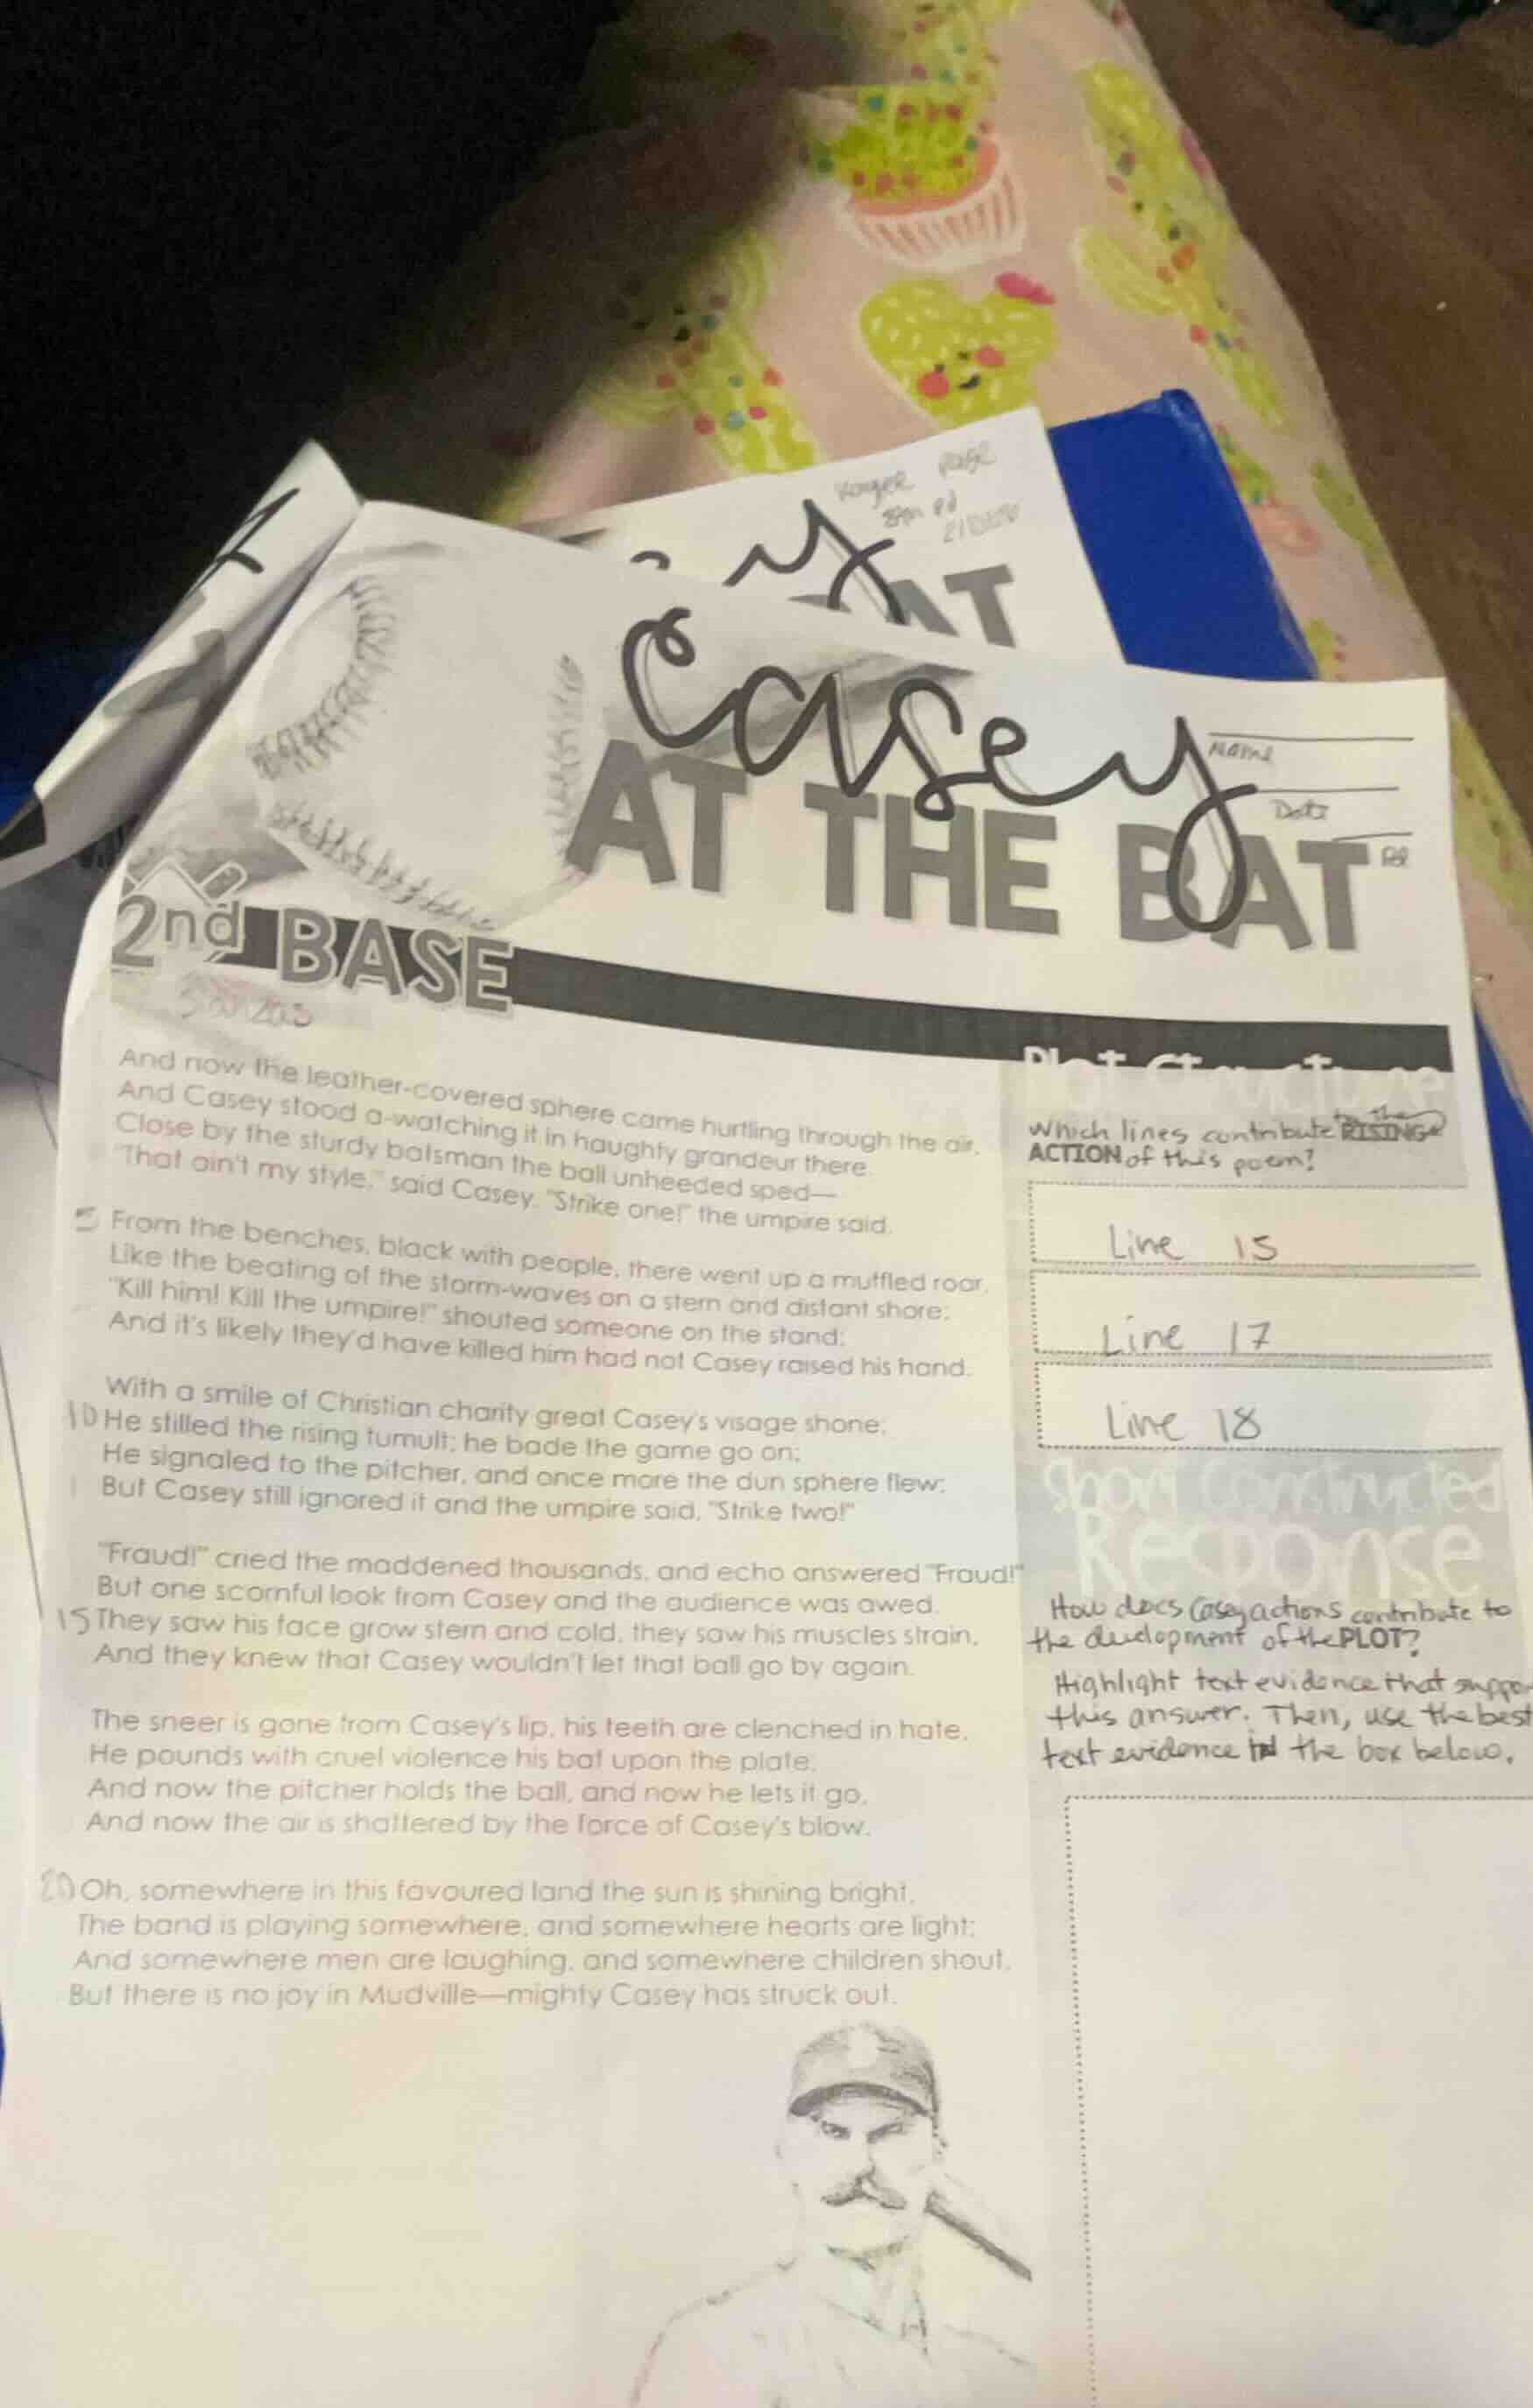 Casey
AT THE BAT
AT
Name
Date
Pd
2nd BASE
And now the leather-covered sphere came hurtling through the air,
And Casey stood a-watching it in haughty grandeur there.
Close by the sturdy batsman the ball unheeded sped—
"That ain't my style," said Casey. "Strike one!" the umpire said.
5 From the benches, black with people, there went up a muffled roar,
Like the beating of the storm-waves on a stern and distant shore;
"Kill him! Kill the umpire!" shouted someone on the stand;
And it's likely they'd have killed him had not Casey raised his hand.
With a smile of Christian charity great Casey's visage shone;
10 He stilled the rising tumult; he bade the game go on;
He signaled to the pitcher, and once more the dun sphere flew;
But Casey still ignored it and the umpire said, "Strike two!"
"Fraud!" cried the maddened thousands, and echo answered "Fraud!"
But one scornful look from Casey and the audience was awed.
15 They saw his face grow stern and cold, they saw his muscles strain,
And they knew that Casey wouldn't let that ball go by again.
The sneer is gone from Casey's lip, his teeth are clenched in hate,
He pounds with cruel violence his bat upon the plate;
And now the pitcher holds the ball, and now he lets it go,
And now the air is shattered by the force of Casey's blow.
20 Oh, somewhere in this favoured land the sun is shining bright,
The band is playing somewhere, and somewhere hearts are light;
And somewhere men are laughing, and somewhere children shout,
But there is no joy in Mudville—mighty Casey has struck out.
Plot Structure
Which lines contribute to the RISING
ACTION of this poem?
Line 15
Line 17
Line 18
Short Constructed
Response
How does Casey actions contribute to
the development of the PLOT?
Highlight text evidence that suppor
this answer. Then, use the best
text evidence in the box below.